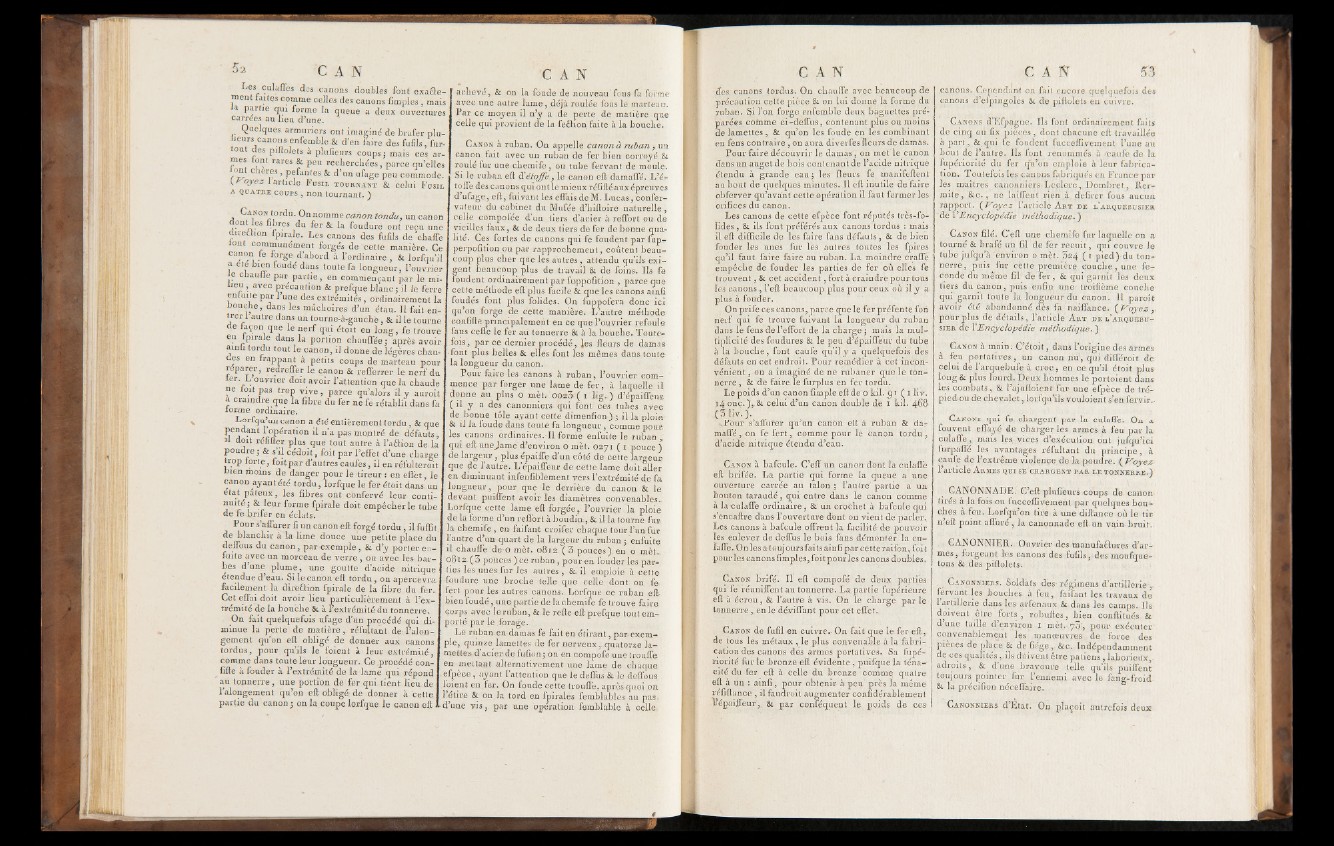 52 C A N
Les culasses des canons doubles sont exacte-
ment faites comme celles des canons simples, mais
la partie qui forme la queue a deux ouvertures
carrées au lieu d'une.
Quelques armuriers ont imaginé de braser plu-
sieurs canons ensemble & d'en faire des fusils, sur-
tout des pistolets à plusieurs coups; mais ces ar-
mes sont rares & peu recherchées, parce qu'elles
sont chères, pesantes & d'un usage peu commode.
(Voyez l'article Fusil tournant & celui Fusil
a quatre coups, non tournant.)
Canon tordu. On nomme canon tordu, un canon
dont les fibres du fer & la soudure ont reçu une
direction spirale. Les canons des fusils de chasse
sont communément forgés de cette manière. Ce
canon se forge d'abord à l'ordinaire, & lorsqu'il
a été bien soudé dans toute sa longueur, l'ouvrier
le chauffe par partie, en commençant par le mi-
lieu, avec précaution & presque blanc; il le serre
ensuite par l'une des extrémités, ordinairement la
bouche, dans les mâchoires d'un étau. Il fait en-
trer l'autre dans un tourne-à-gauche, & il le tourne
de façon que le nerf qui étoit en long, se trouve
en spirale dans la portion chauffée; après avoir
ainsi tordu tout le canon, il donne de légères chau-
des en frappant à petits coups de marteau pour
réparer, redresser le canon & resserrer le nerf du
fer. L'ouvrier doit avoir l'attention que la chaude
ne soit pas trop vive, parce qu'alors il y auroit
à craindre que la fibre du fer ne se rétablît dans sa
forme ordinaire.
Lorsqu'un canon a été entièrement tordu, & que
pendant l'opération il n'a pas montré de défauts,
il doit résister plus que tout autre à l'action de la
poudre; & s'il cédoit, soit par l'effet d'une charge
trop forte, soit par d'autres causes, il en résulteroit
bien moins de danger pour le tireur: en effet, le
canon ayant été tordu, lorsque le fer étoit dans un
état pâteux, les fibres ont conservé leur conti-
nuité; & leur forme spirale doit empêcher le tube
de se briser en éclats.
Pour s'assurer si un canon est forgé tordu, il suffit
de blanchir à la lime douce une petite place du
dessous du canon, par exemple, & d'y porter en-
suite avec un morceau de verre, ou avec les bar-
bes d'une plume, une goutte d'acide nitrique
étendue d'eau. Si le canon est tordu, on apercevra
facilement la direction spirale de la fibre du fer.
Cet essai doit avoir lieu particulièrement à l'ex-
trémité de la bouche & à l'extrémité du tonnerre.
On fait quelquefois usage d'un procédé qui di-
minue la perte de matière, résultant de l'alon-
gement qu'on est obligé de donner aux canons
tordus, pour qu'ils le soient à leur extrémité,
comme dans toute leur longueur. Ce procédé con-
siste à souder à l'extrémité de la lame qui répond
au tonnerre, une portion de fer qui tient lieu de
l'alongement qu'on est obligé de donner à cette
partie du canon; on la coupe lorsque le canon est
C A N
achevé, & on la soude de nouveau sous sa forme
avec une autre lame, déjà roulée sous le marteau.
Par ce moyen il n'y a de perte de matière que
celle qui provient de la section faite à la bouche.
Canon à ruban. On appelle canon à ruban, un
canon fait avec un ruban de fer bien corroyé &
roulé sur une chemise, ou tube servant de moule.
Si le ruban est d'étoffe, le canon est damassé. L'é-
toffe des canons qui ont le mieux résisté aux épreuves
d'usage, est, suivant les essais de M. Lucas, conser-
vateur du cabinet du Musée d'histoire naturelle,
celle composée d'un tiers d'acier à ressort ou de
vieilles faux, & de deux tiers de fer de bonne qua-
lité. Ces sortes de canons qui se soudent par sup-
perposition ou par rapprochement, coûtent beau-
coup plus cher que les autres, attendu qu'ils exi-
gent beaucoup plus de travail & de soins. Ils se
soudent ordinairement par supposition, parce que
cette méthode est plus facile & que les canons ainsi
soudés sont plus solides. On supposera donc ici
qu'on forge de cette manière. L'autre méthode
consiste principalement en ce que l'ouvrier refoule
sans cesse le fer au tonnerre & à la bouche. Toute-
fois, par ce dernier procédé, les fleurs de damas
sont plus belles & elles sont les mêmes dans toute
la longueur du canon.
Pour faire les canons à ruban, l'ouvrier com-
mence par forger une lame de fer, à laquelle il
donne au plus 0 mèt. 0023 (1 lig.) d'épaisseur
(il y a des canonniers qui font ces tubes avec
de bonne tôle ayant cette dimension); il la ploie
& il la soude dans toute sa longueur, comme pour
les canons ordinaires. Il forme ensuite le ruban,
qui est une lame d'environ 0 mèt. 0271 (1 pouce)
de largeur, plus épaisse d'un côté de cette largeur
que de l'autre. L'épaisseur de cette lame doit aller
en diminuant insensiblement vers l'extrémité de sa
longueur, pour que le derrière du canon & le
devant puissent avoir les diamètres convenables.
Lorsque cette lame est forgée, l'ouvrier la ploie
de la forme d'un ressort à boudin, & il la tourne sur
la chemise, en faisant croiser chaque tour l'un sur
l'autre d'un quart de la largeur du ruban; ensuite
il chauffe de 0 mèt. 0812 (3 pouces) en 0 mèt.
0812 (3 pouces) ce ruban, pour en souder les par-
ties les unes sur les autres, & il emploie à cette
soudure une broche telle que celle dont on se
sert pour les autres canons. Lorsque ce ruban est
bien soudé, une partie de la chemise se trouve faire
corps avec le ruban, & le reste est presque tout em-
porté par le forage.
Le ruban en damas se fait en étirant, par exem-
ple, quinze lamettes de fer nerveux, quatorze la-
mettes d'acier de fusion; on en compose une trousse
en mettant alternativement une lame de chaque
espèce, ayant l'attention que le dessus & le dessous
soient en fer. On soude cette trousse, après quoi on
l'étire & on la tord en spirales semblables au pas
d'une vis, par une opération semblable à celle
C A N
des canons tordus. On chauffe avec beaucoup de
précaution cette pièce & on lui donne la forme du
ruban. Si l'on forge ensemble deux baguettes pré-
parées comme ci-dessus, contenant plus ou moins
de lamettes, & qu'on les soude en les combinant
en sens contraire, on aura diverses fleurs de damas.
Pour faire découvrir le damas, on met le canon
dans un auget de bois contenant de l'acide nitrique
étendu à grande eau; les fleurs se manifestent
au bout de quelques minutes. Il est inutile de faire
observer qu'avant cette opération il faut fermer les
orifices du canon.
Les canons de cette espèce sont réputés très-so-
lides, & ils sont préférés aux canons tordus: mais
il est difficile de les faire sans défauts, & de bien
souder les unes sur les autres toutes les spires
qu'il faut faire faire au ruban. La moindre crasse
empêche de souder les parties de fer où elles se
trouvent, & cet accident, fort à craindre pour tous
les canons, l'est beaucoup plus pour ceux où il y a
plus à souder.
On prise ces canons, parce que le fer présente son
nerf qui se trouve suivant la longueur du ruban
dans le sens de l'effort de la charge; mais la mul-
tiplicité des soudures & le peu d'épaisseur du tube
à la bouche, sont cause qu'il y a quelquefois des
défauts en cet endroit. Pour remédier à cet incon-
vénient, on a imaginé de ne rubaner que le ton-
nerre, & de faire le surplus en fer tordu.
Le poids d'un canon simple est de 0 kil. 91 (1 liv.
14 onc.), & celui d'un canon double de 1 kil. 468
(3 liv.).
Pour s'assurer qu'un canon est à ruban & da-
massé, on se sert, comme pour le canon tordu,
d'acide nitrique étendu d'eau.
Canon à bascule. C'est un canon dont la culasse
est brisée. La partie qui forme la queue a une
ouverture carrée au talon; l'autre partie a un
bouton taraudé, qui entre dans le canon comme
à la culasse ordinaire, & un crochet à bascule qui
s'encastre dans l'ouverture dont on vient de parler.
Les canons à bascule offrent la facilité de pouvoir
les enlever de dessus le bois sans démonter la cu-
lasse. On les a toujours faits ainsi par cette raison, soit
pour les canons simples, soit pour les canons doubles.
Canon brisé. Il est composé de deux parties
qui se réunissent au tonnerre. La partie supérieure
est à écrou, & l'autre à vis. On le charge par le
tonnerre, en le dévissant pour cet effet.
Canon de fusil en cuivre. On sait que le fer est,
de tous les métaux, le plus convenable à la fabri-
cation des canons des armes portatives. Sa supé-
riorité sur le bronze est évidente, puisque la téna-
cité du fer est à celle du bronze comme quatre
est à un: ainsi, pour obtenir à peu près la même
résistance, il faudroit augmenter considérablement
l'épaisseur, & par conséquent le poids de ces
C A N 53
canons. Cependant on fait encore quelquefois des
canons d'espingoles & de pistolets en cuivre.
Canons d'Espagne. Ils sont ordinairement faits
de cinq ou six pièces, dont chacune est travaillée
à part, & qui se soudent successivement l'une au
bout de l'autre. Ils sont renommés à cause de la
supériorité du fer qu'on emploie à leur fabrica-
tion. Toutefois les canons fabriqués en France par
les maîtres canonniers Leclerc, Dombret, Ber-
mite, &c., ne laissent rien à désirer sous aucun
rapport. (Voyez l'article Art de l'arquebusier
de l'Encyclopédie méthodique.)
Canon filé. C'est une chemise sur laquelle on a
tourné & brasé un fil de fer recuit, qui couvre le
tube jusqu'à environ 0 mèt. 324 (1 pied) du ton-
nerre, puis sur cette première couche, une se-
conde du même fil de fer, & qui garnit les deux
tiers du canon, puis enfin une troisième couche
qui garnit toute la longueur du canon. Il paroît
avoir été abandonné dès sa naissance. (Voyez,
pour plus de détails, l'article Art de l'arquebu-
sier de l'Encyclopédie méthodique.)
Canon à main. C'étoit, dans l'origine des armes
à feu portatives, un canon nu, qui différoit de
celui de l'arquebuse à croc, en ce qu'il étoit plus
long & plus lourd. Deux hommes le portoient dans
les combats, & l'ajustoient sur une espèce de tré-
pied ou de chevalet, lorsqu'ils vouloient s'en servir.
Canons qui se chargent par la culasse. On a
souvent essayé de charger les armes à feu par la
culasse, mais les vices d'exécution ont jusqu'ici
surpassé les avantages résultant du principe, à
cause de l'extrême violence de la poudre. (Voyez
l'article Armes qui se chargent par le tonnerre.)
CANONNADE. C'est plusieurs coups de canon
tirés à la fois ou successivement par quelques bou-
ches à feu. Lorsqu'on tire à une distance où le tir
n'est point assuré, la canonnade est un vain bruit.
CANONNIER. Ouvrier des manufactures d'ar-
mes, forgeant les canons des fusils, des mousque-
tons & des pistolets.
Canonniers. Soldats des régimens d'artillerie,
servant les bouches à feu, faisant les travaux de
l'artillerie dans les arsenaux & dans les camps. Ils
doivent être forts, robustes, bien constitués &
d'une taille d'environ 1 mèt. 73, pour exécuter
convenablement les manœuvres de force des
pièces de place & de siége, &c. Indépendamment
de ces qualités, ils doivent être patiens, laborieux,
adroits, & d'une bravoure telle qu'ils puissent
toujours pointer sur l'ennemi avec le sang-froid
& la précision nécessaire.
Canonniers d'État. On plaçoit autrefois deux